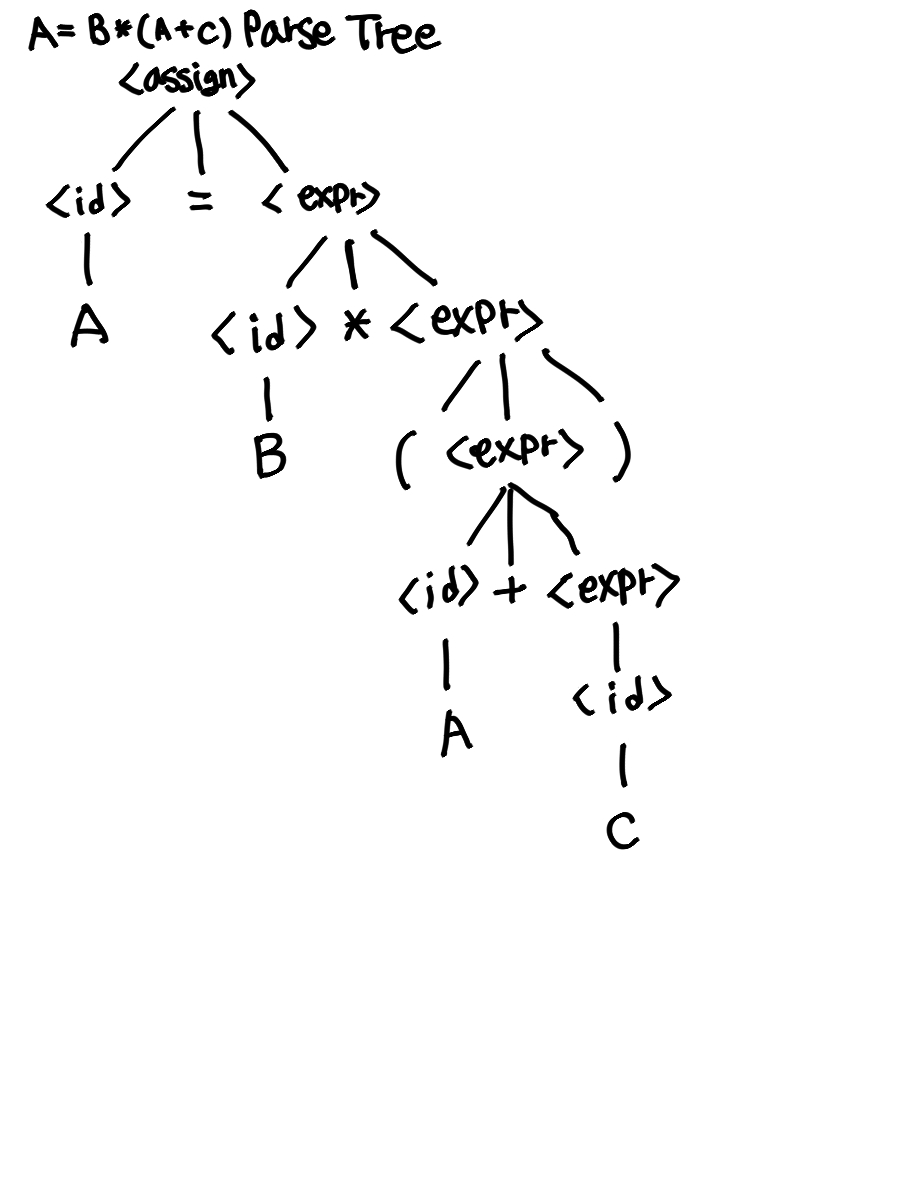 A = B*(A+C) Parse Tree
<assign>
<id> = <expr>
A <id> * <expr>
B ( <expr> )
<id> + <expr>
A <id>
C